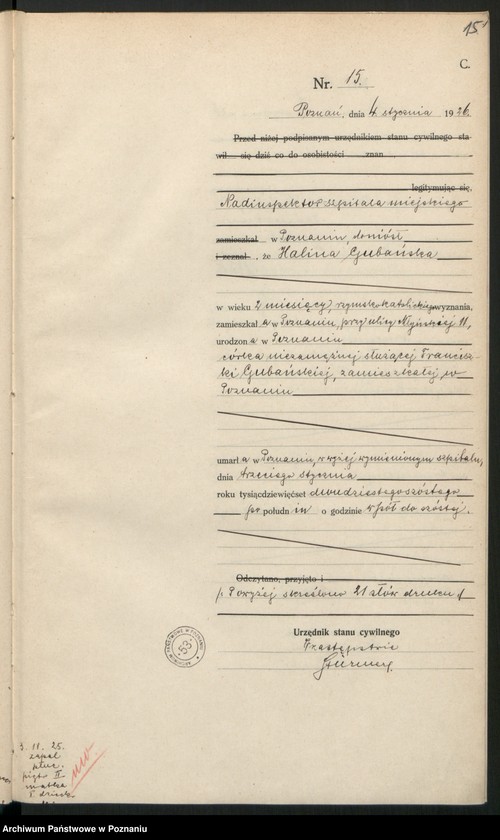 15
C.
Nr. 15.
Poznań, dnia 4 stycznia 1926.
Przed niżej podpisanym urzędnikiem stanu cywilnego sta
wił się dziś co do osobistości znan
legitymując się,
Nadinspektor szpitala miejskiego
zamieszkał w Poznaniu, doniósł
i zeznał, że Halina Gubańska
w wieku 2 miesięcy, rzymskokatolickiego wyznania,
zamieszkała w Poznaniu, przy ulicy 11,
urodzona w Poznaniu
córka niezamężnej służącej Francisz-
ki Gubańskiej, zamieszkałej w
Poznaniu
umarła w Poznaniu, w wyżej wymienionym szpitalu,
dnia trzeciego stycznia
roku tysiącdziewięćset dwudziestegoszóstego
po południu o godzinie wpół do szóstej.
Odczytano, przyjęto i
Powyżej skreślono 21 słów druku
Urzędnik stanu cywilnego
W zastępstwie
53
3. 11. 25.
zapal
płuc.
piętr II
matka
Archiwum Państwowe w Poznaniu